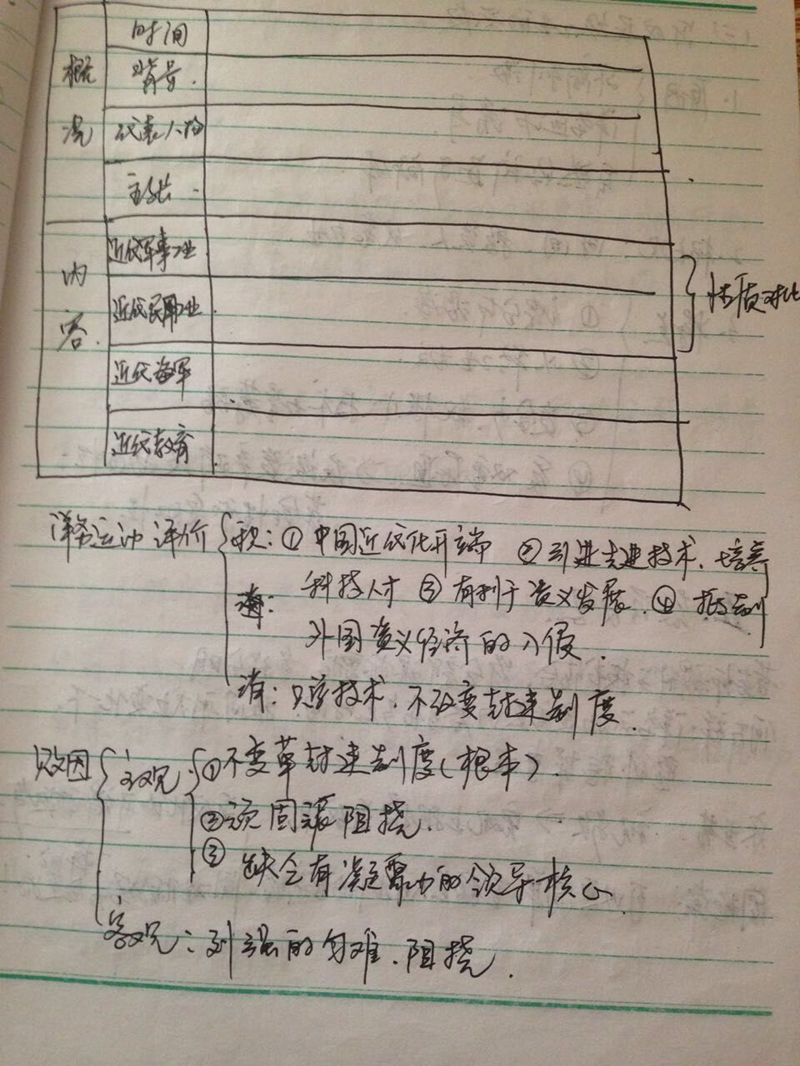 概况
时间
背景
代表人物
主张
内容
近代军事工业
近代民用工业
性质对比
近代海军
近代教育
洋务运动评价
积:① 中国近代化开端 ② 引进先进技术、培养
科技人才 ③ 有利于资义发展 ④ 抵制
外国资义经济的入假.
消:只学技术、不改变封建制度.
败因
主观
①不变革封建制度(根本).
②顽固派阻挠.
③ 缺乏有凝聚力的领导核心
客观:列强的勾难、阻挠.